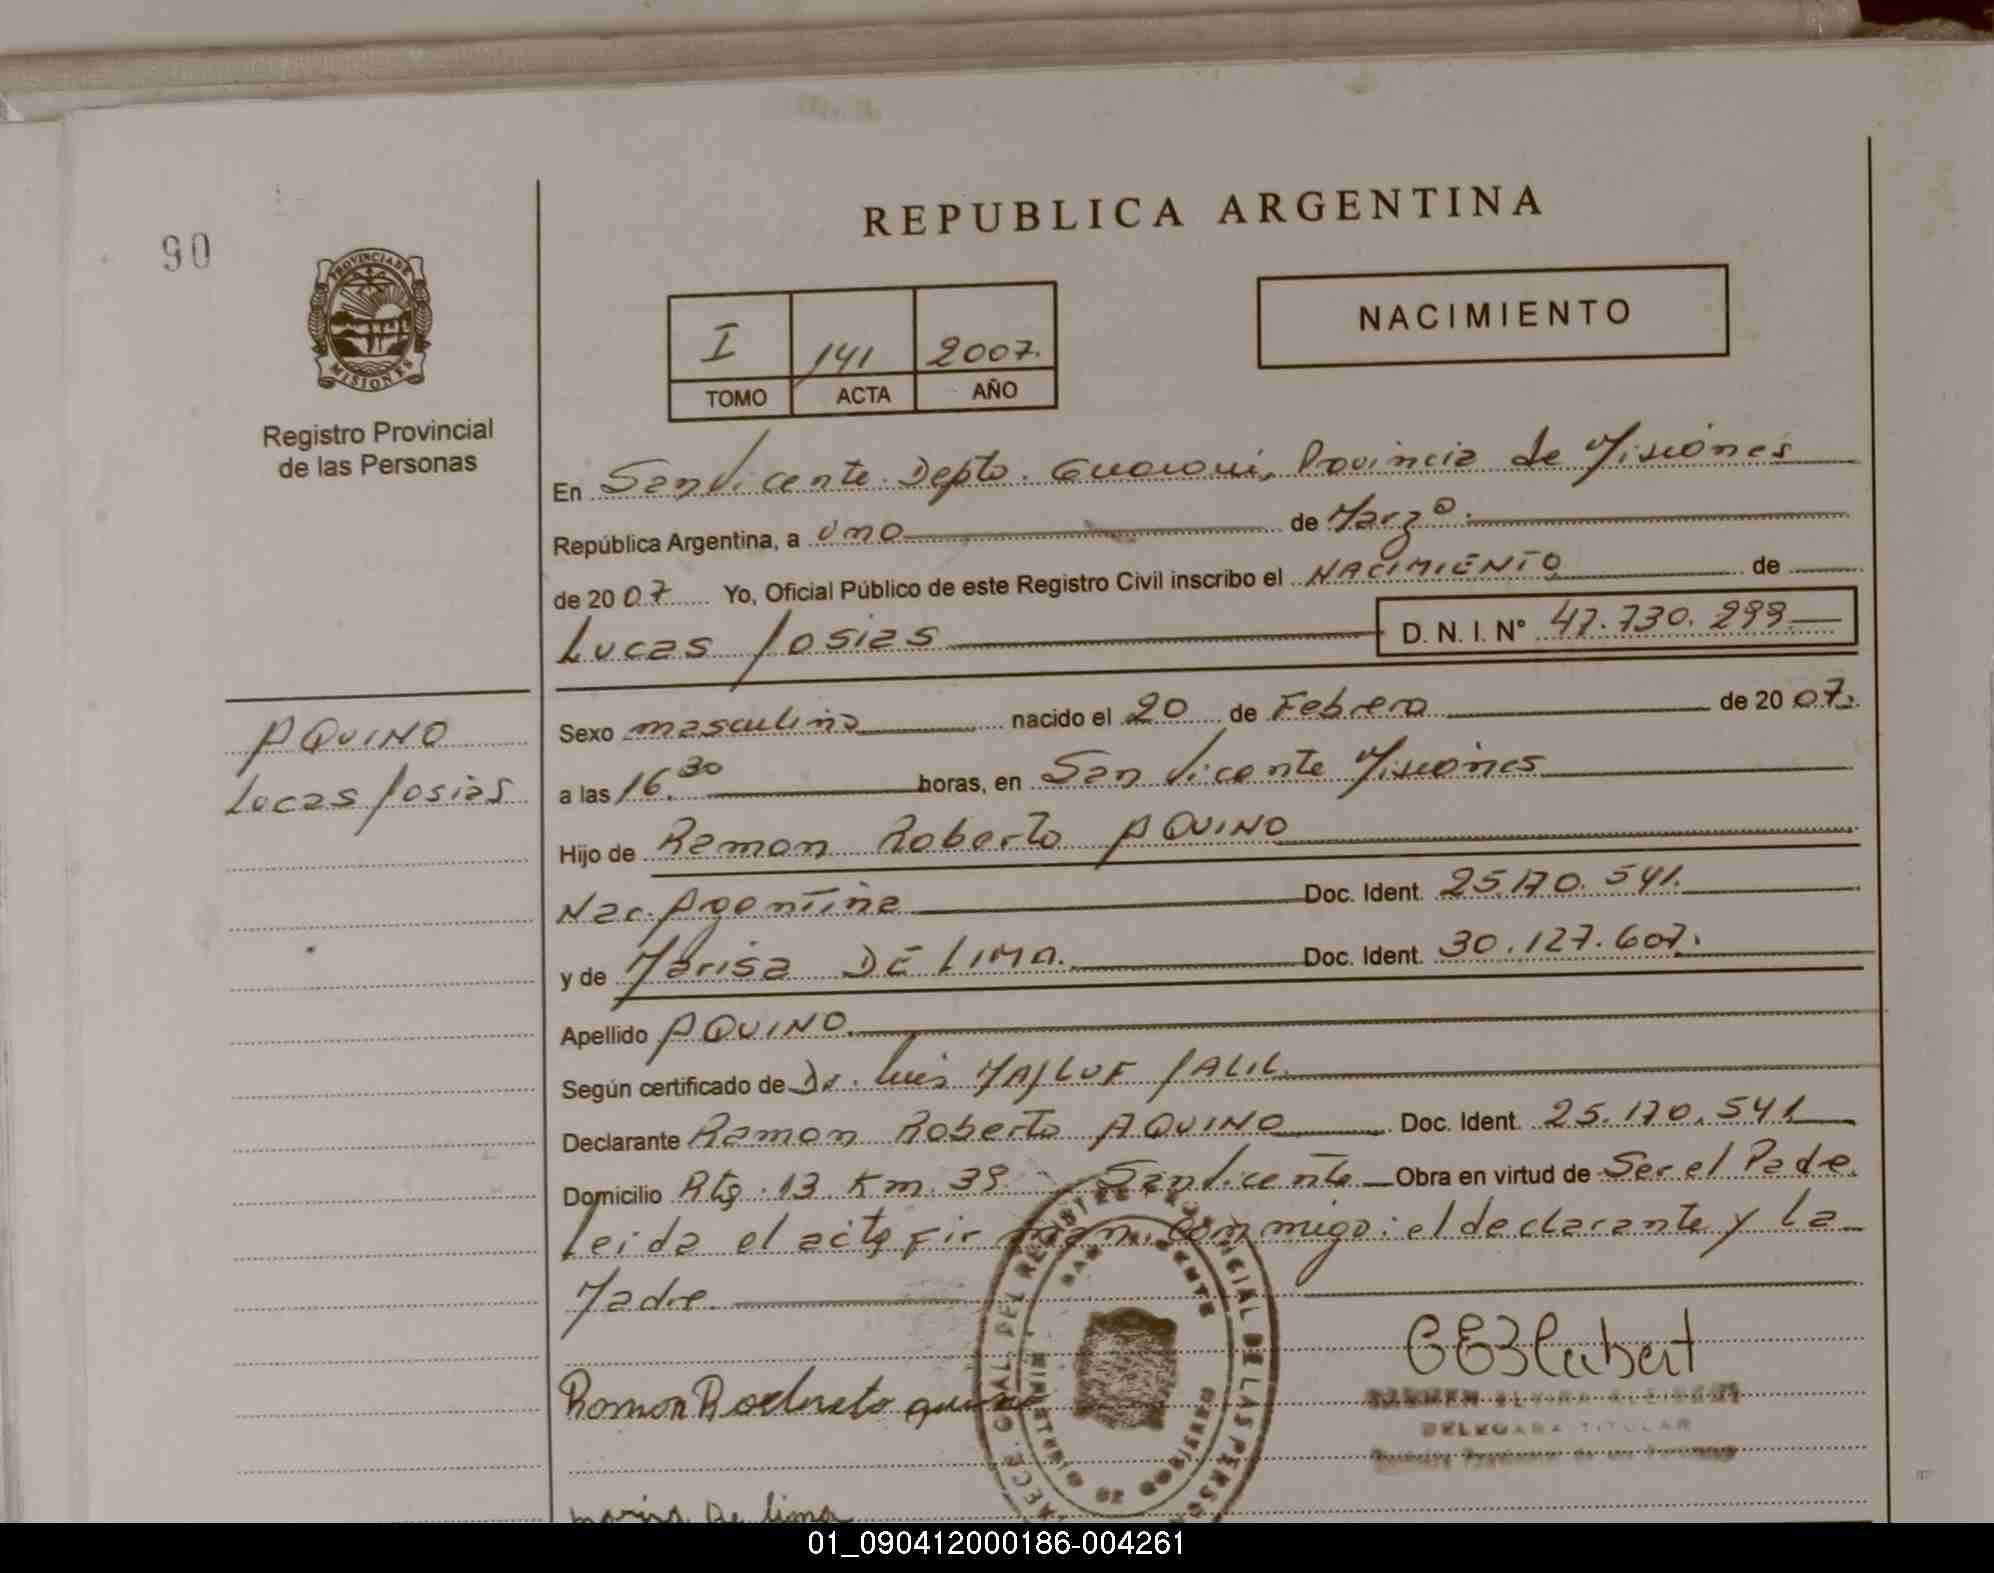 REPUBLICA ARGENTINA
90
PROVINCIA DE
MISIONES
Registro Provincial
de las Personas
I 141 2007.
TOMO ACTA AÑO
NACIMIENTO
En San Vicente. Depto. Guarani, Provincia de Misiones
República Argentina, a uno de Marzo.
de 2007 Yo, Oficial Público de este Registro Civil inscribo el NACIMIENTO de
Lucas Josias D. N. I. N° 47.730.299
AQUINO
Lucas Josias
Sexo masculino nacido el 20 de Febrero de 2007.
a las 16.30 horas, en San Vicente Misiones
Hijo de Ramon Roberto AQUINO
Nac. Argentina Doc. Ident. 25.170.541.
y de Marisa DE LIMA. Doc. Ident. 30.127.607.
Apellido AQUINO.
Según certificado de Dr. Luis JALIL.
Declarante Ramon Roberto AQUINO Doc. Ident. 25.170.541
Domicilio Rta. 13 Km. 39 San Vicente Obra en virtud de Ser el Padre
Leida el acta firman conmigo: el declarante y La
Madre.
DELEGADA TITULAR
Marisa De Lima
01_090412000186-004261